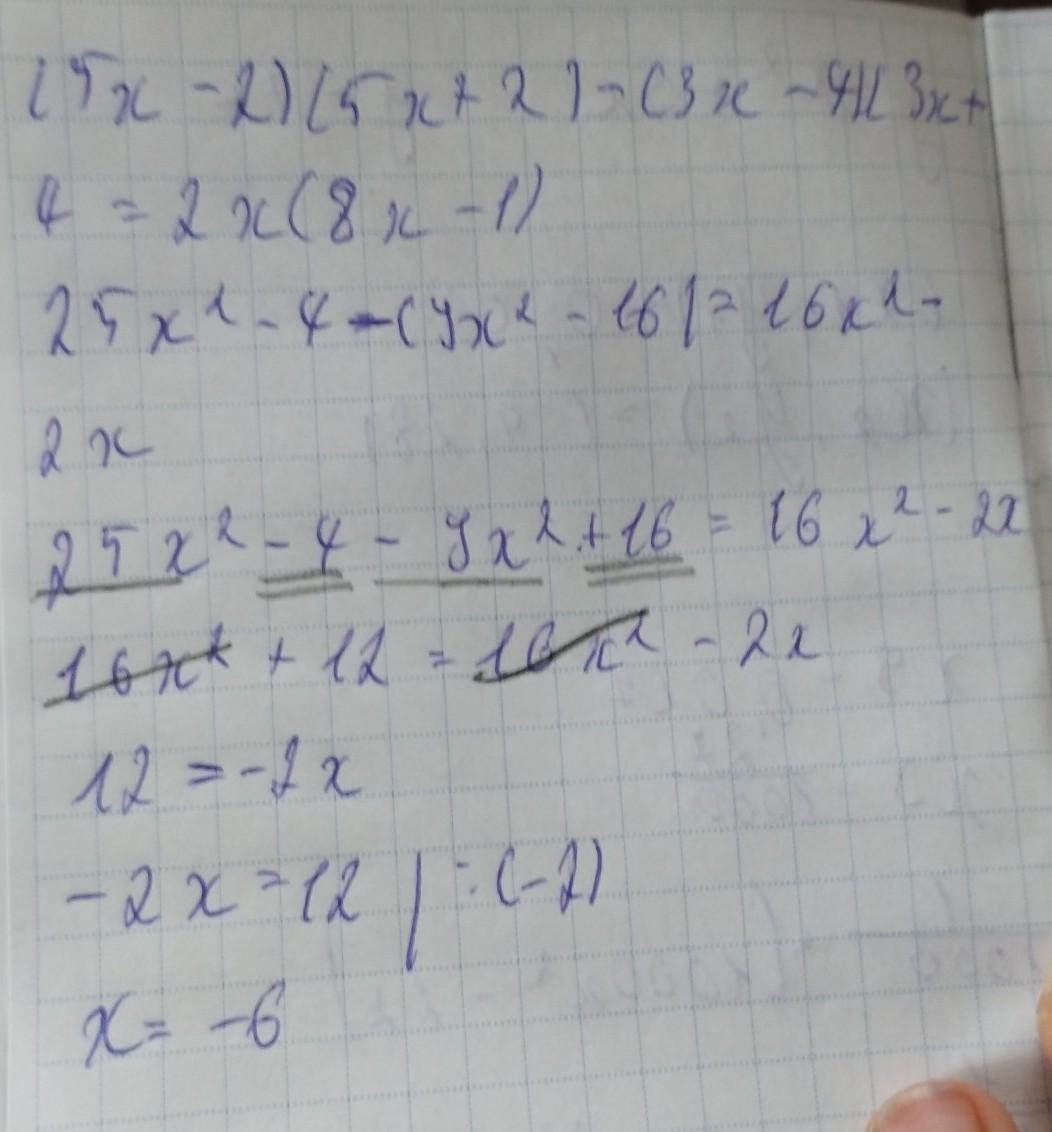 (5x - 2)(5x + 2) - (3x - 4)(3x +
4 = 2x(8x - 1)
25x² - 4 - (9x² - 16) = 16x² -
2x
25x² - 4 - 9x² + 16 = 16x² - 2x
16x² + 12 = 16x² - 2x
12 = -2x
-2x = 12 | : (-2)
x = -6